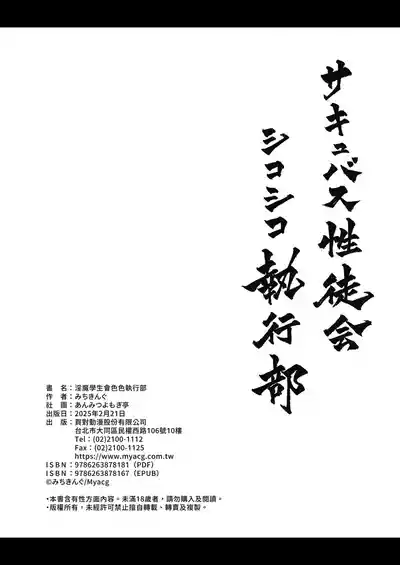 サキュバス性徒会
シコシコ執行部
書　名：淫魔學生會色色執行部
作　者：みちきんぐ
社　團：あんみつよもぎ亭
出版日：2025年2月21日
出　版：買對動漫股份有限公司
台北市大同區民權西路106號10樓
Tel：(02)2100-1112
Fax：(02)2100-1125
https://www.myacg.com.tw
ISBN：9786263878181 (PDF)
ISBN：9786263878167 (EPUB)
©みちきんぐ/Myacg
•本書含有性方面內容。未滿18歲者，請勿購入及閱讀。
•版權所有，未經許可禁止擅自轉載、轉賣及複製。